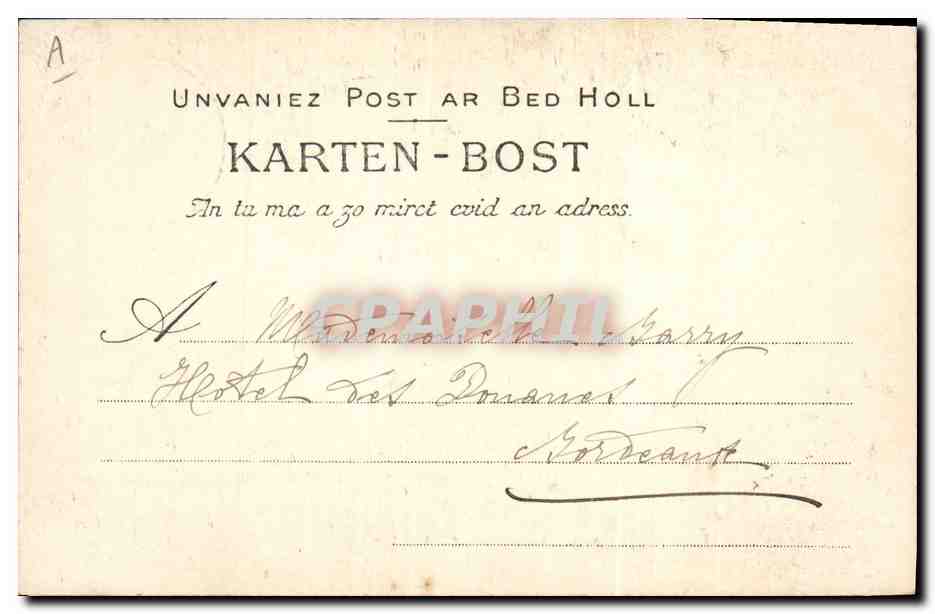 A
UNVANIEZ POST AR BED HOLL
KARTEN-BOST
An tu ma a zo miret evid an adress.
A Mademoiselle Barry
CPAPHTI
Hotel des Douanes
Bordeaux